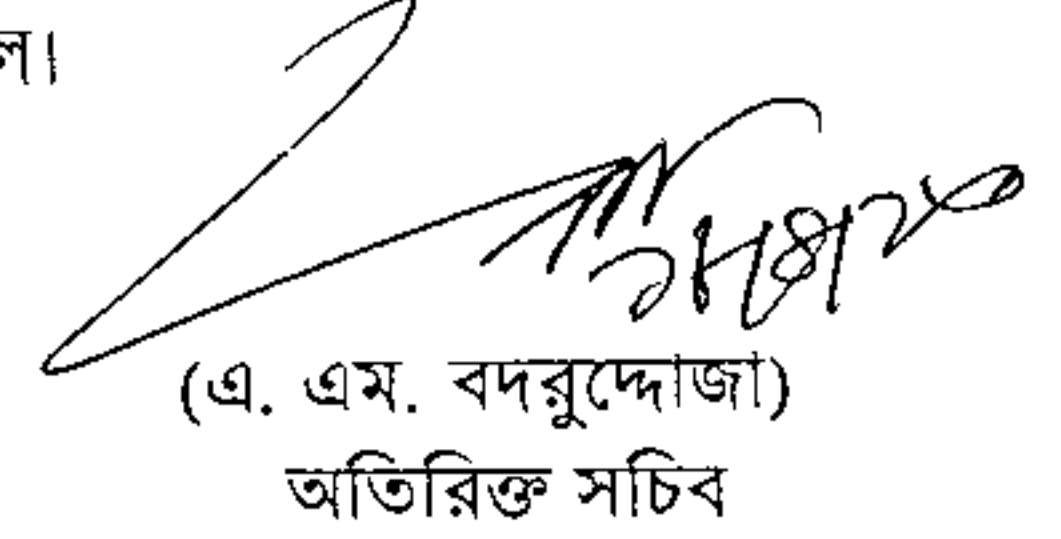 ল।
(এ. এম. বদরুদ্দোজা)
অতিরিক্ত সচিব